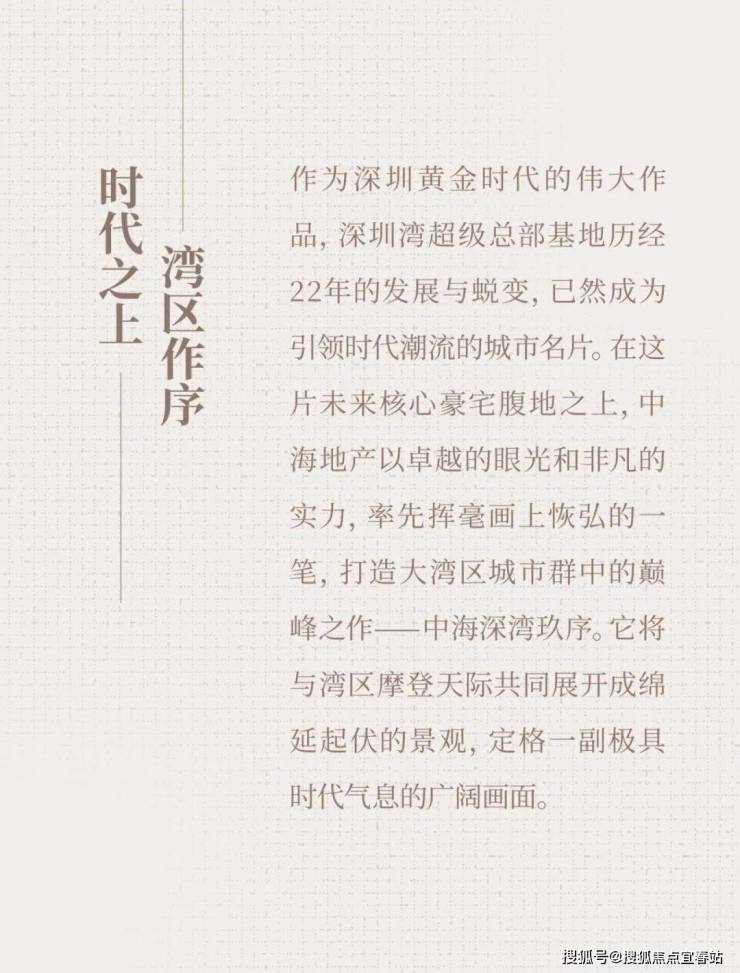 时代之上
湾区作序
作为深圳黄金时代的伟大作
品，深圳湾超级总部基地历经
22年的发展与蜕变，已然成为
引领时代潮流的城市名片。在这
片未来核心豪宅腹地之上，中
海地产以卓越的眼光和非凡的
实力，率先挥毫画上恢弘的一
笔，打造大湾区城市群中的巅
峰之作——中海深湾玖序。它将
与湾区摩登天际共同展开成绵
延起伏的景观，定格一副极具
时代气息的广阔画面。
搜狐号@搜狐焦点宜春站